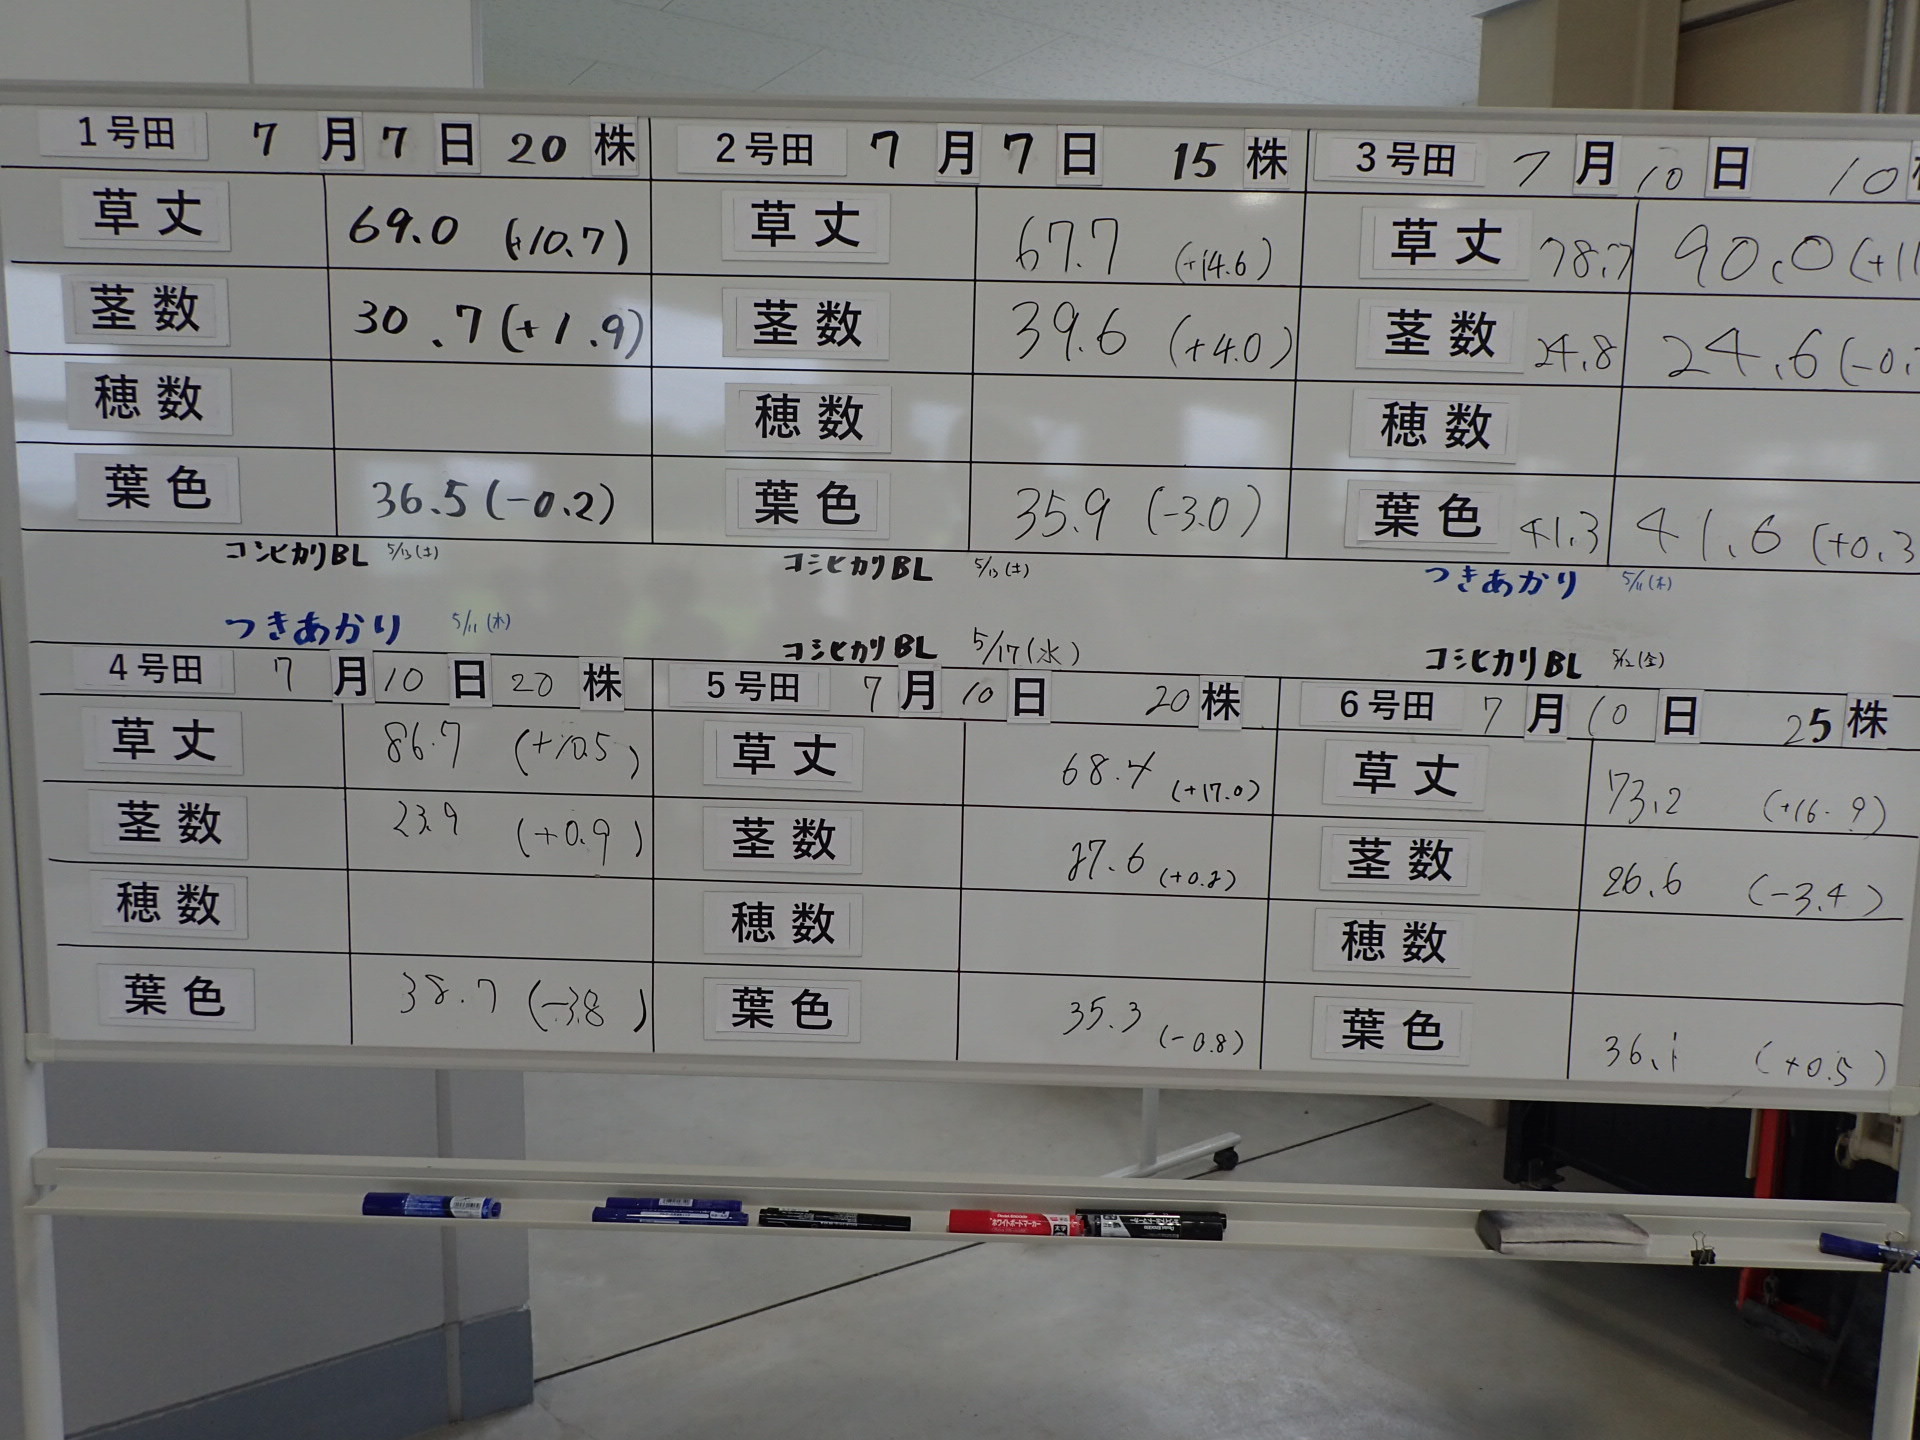 1号田 7月7日 20株
草丈 69.0 (+10.7)
茎数 30.7 (+1.9)
穂数
葉色 36.5 (-0.2)
コシヒカリBL 5/13(土)
2号田 7月7日 15株
草丈 67.7 (+14.6)
茎数 39.6 (+4.0)
穂数
葉色 35.9 (-3.0)
コシヒカリBL 5/13(土)
3号田 7月10日 10
草丈 78.7 90.0 (+1
茎数 24.8 24.6 (-0.
穂数
葉色 41.3 41.6 (+0.3
つきあかり 5/11(木)
つきあかり 5/11(木)
4号田 7月10日 20株
草丈 86.7 (+10.5)
茎数 23.9 (+0.9)
穂数
葉色 38.7 (-3.8)
コシヒカリBL 5/17(水)
5号田 7月10日 20株
草丈 68.4 (+17.0)
茎数 27.6 (+0.2)
穂数
葉色 35.3 (-0.8)
コシヒカリBL 5/12(金)
6号田 7月10日 25株
草丈 73.2 (+16.9)
茎数 26.6 (-3.4)
穂数
葉色 36.1 (+0.5)